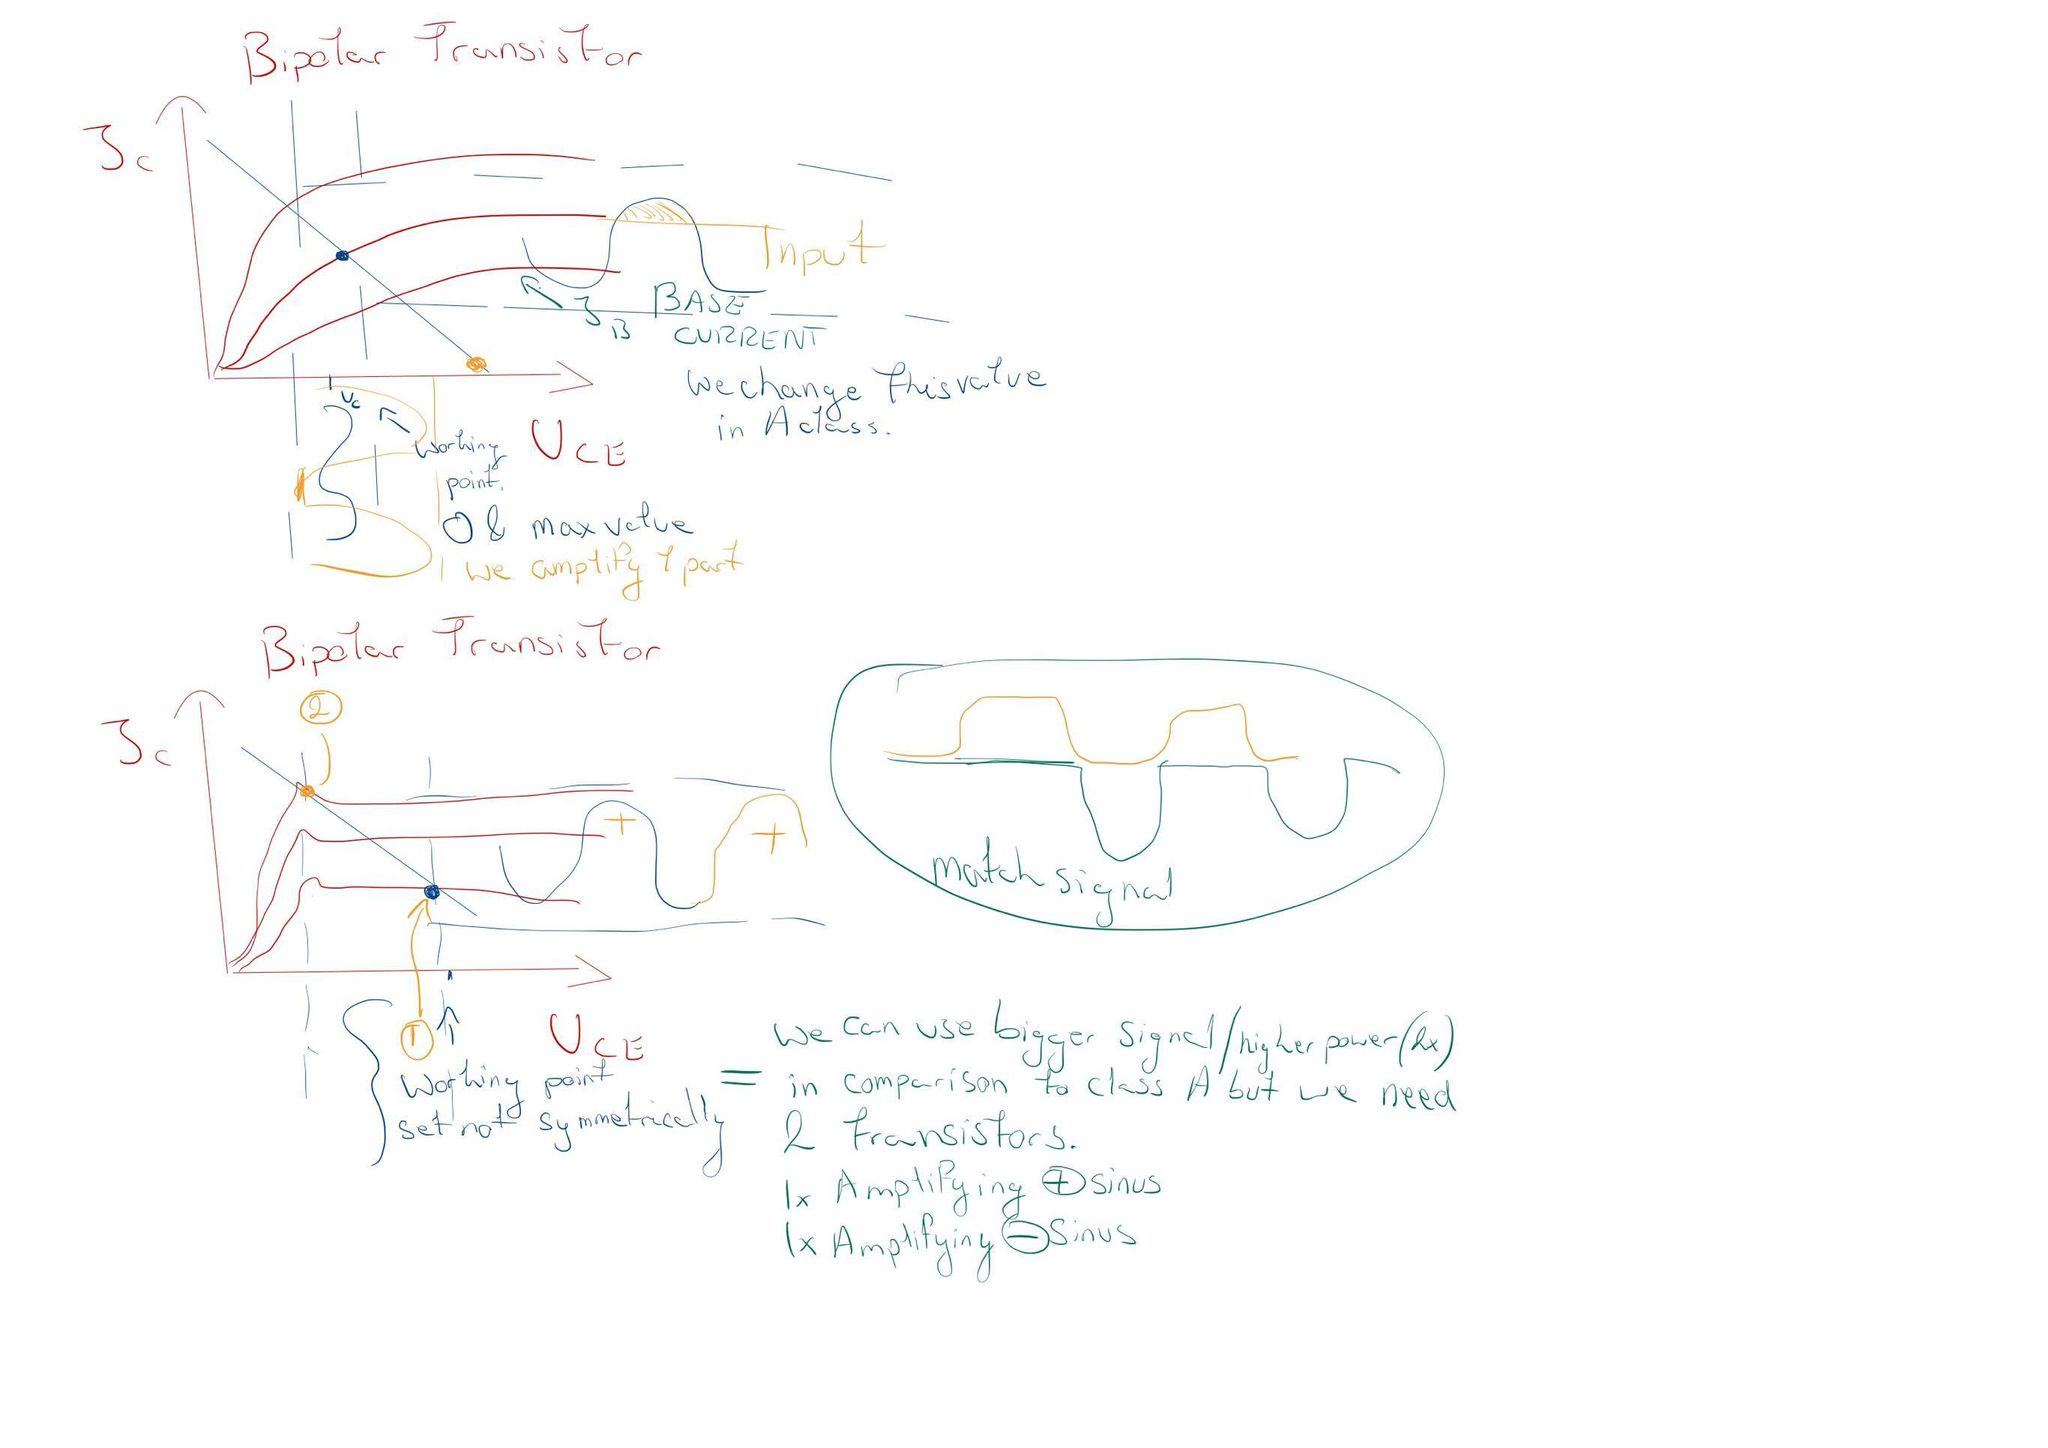 Bipolar Transistor
Jc
Input
JB BASE
CURRENT
we change this value
in A class.
Uc
Working
point.
UCE
0 & max value
we amplify 1 part
Bipolar Transistor
2
Jc
+
+
match signal
1
UCE
Working point
set not symmetrically
= we can use bigger signal/higher power (2x)
in comparison to class A but we need
2 transistors.
1x Amplifying + sinus
1x Amplifying - sinus